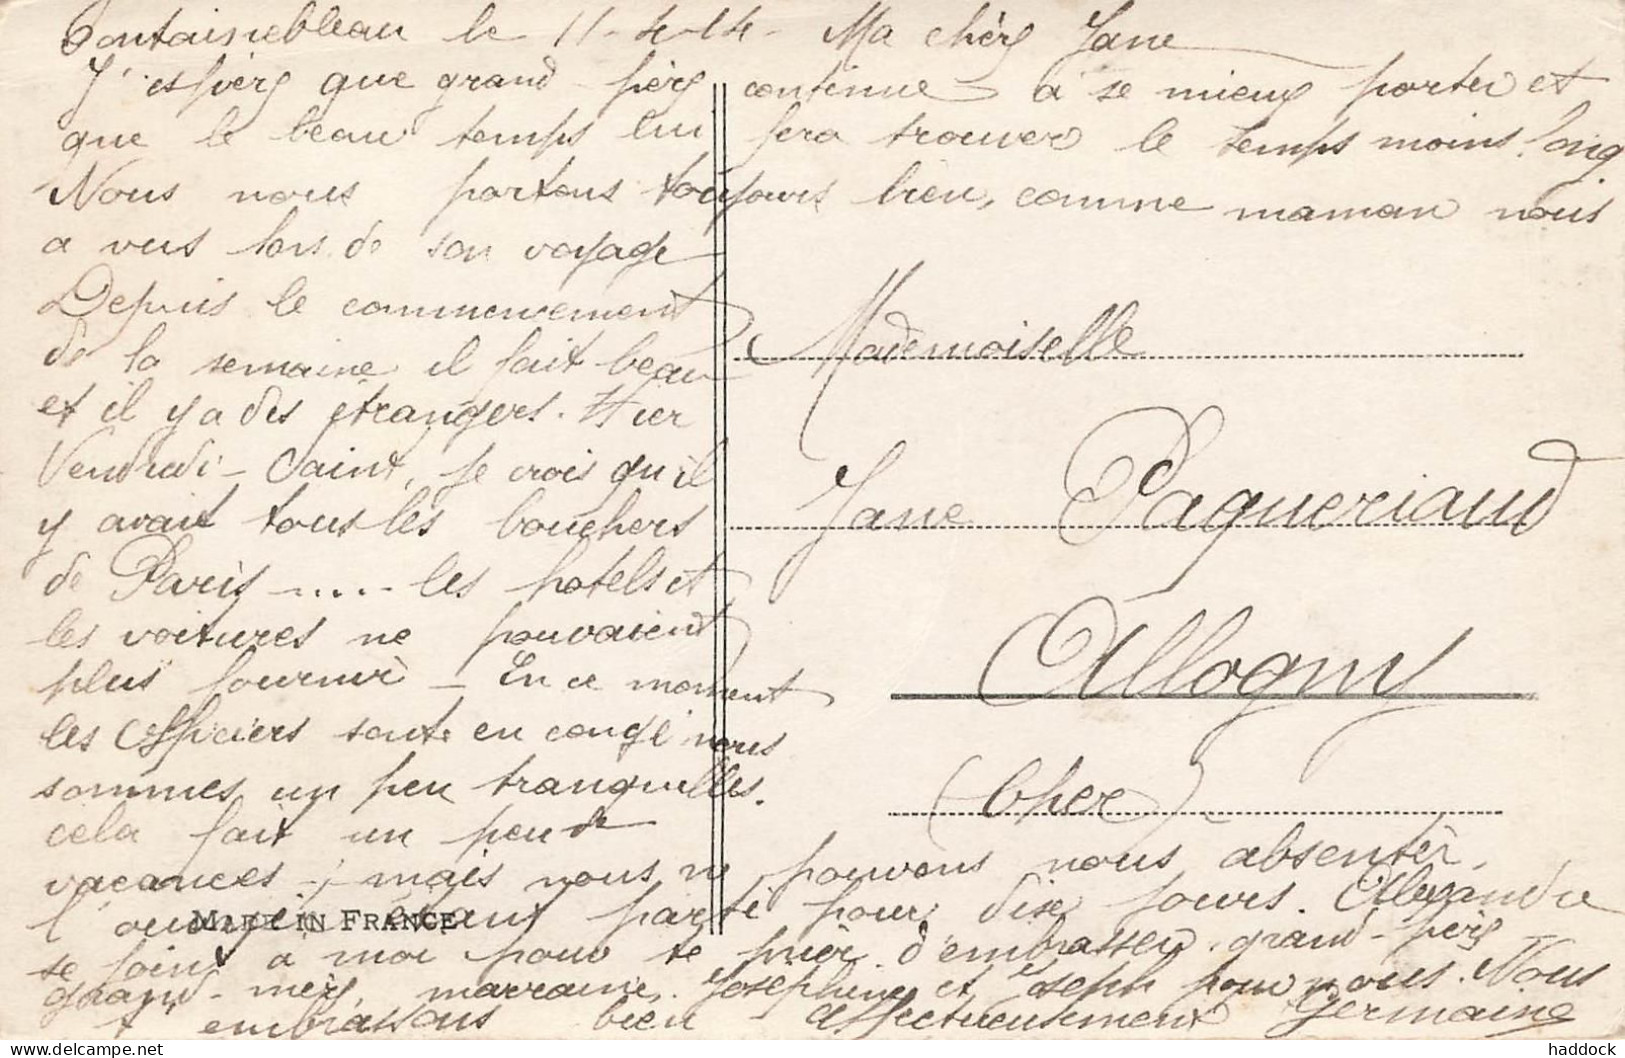 Fontainebleau le 11-4-14 - Ma chère Jane
J'espère que grand-père continue à se mieux porter et
que le beau temps lui fera trouver le temps moins long
Nous nous portons toujours bien, comme maman nous
a vus lors de son voyage
Depuis le commencement
de la semaine il fait beau
et il y a des étrangers. Hier
Vendredi-Saint, je crois qu'il
y avait tous les bouchers
de Paris ----- les hotels et
les voitures ne pouvaient
plus fournir - En ce moment
les officiers sont en congé nous
sommes un peu tranquilles.
cela fait un peu de
vacances -, mais nous ne pouvons nous absenter,
l'ouvrier étant parti pour dix jours. Alexandre
se joint à moi pour te prier d'embrasser grand-père
grand-mère, marraine, Joséphine et Joseph pour nous. Nous
t'embrassons bien affectueusement Germaine
Mademoiselle
Jane Pagueriaud
Allogny
(Cher)
MADE IN FRANCE
haddock